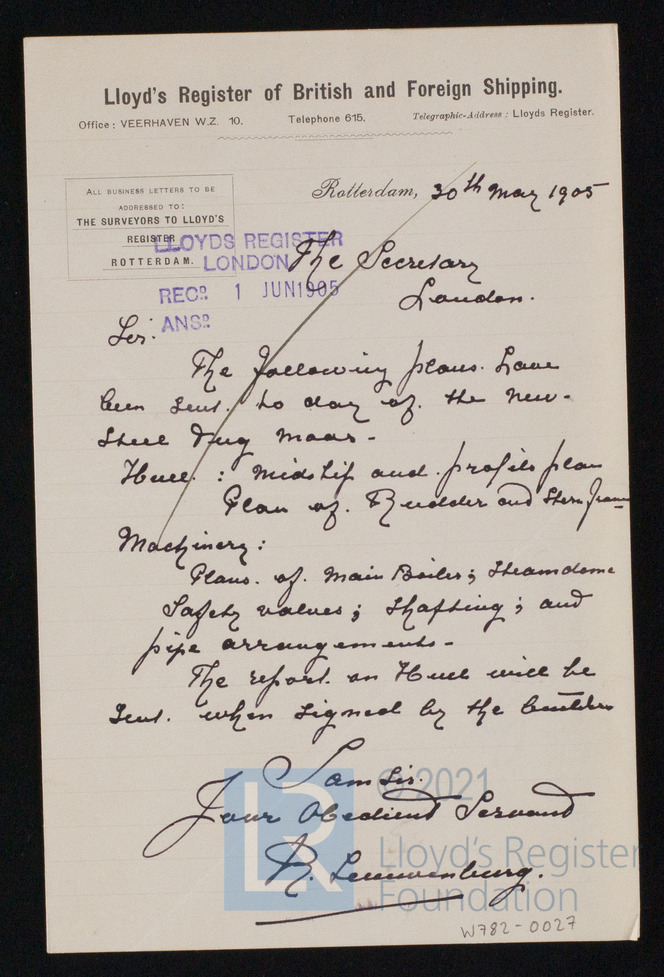 Lloyd's Register of British and Foreign Shipping.
Office: VEERHAVEN W.Z. 10. Telephone 615. Telegraphic-Address: Lloyds Register.
ALL BUSINESS LETTERS TO BE
ADDRESSED TO:
THE SURVEYORS TO LLOYD'S
REGISTER
ROTTERDAM.
Rotterdam, 30th May 1905
LLOYDS REGISTER
LONDON
RECD. 1 JUN 1905
ANSD.
The Secretary
London.
Sir.
The following plans have
been sent. to day of. the new-
steel Tug Maas-
Hull. : Midship and profile plan
Plan of. Rudder and Stern frame
Machinery:
Plans. of. Main Boiler; Steamdome
Safety valves; Shafting; and
pipe arrangements-
The report. on Hull will be
Sent. when signed by the builders
I am Sir.
Your Obedient Servant
R. Leeuwenburg.
© 2021
LR
Lloyd's Register
Foundation
W782-0027